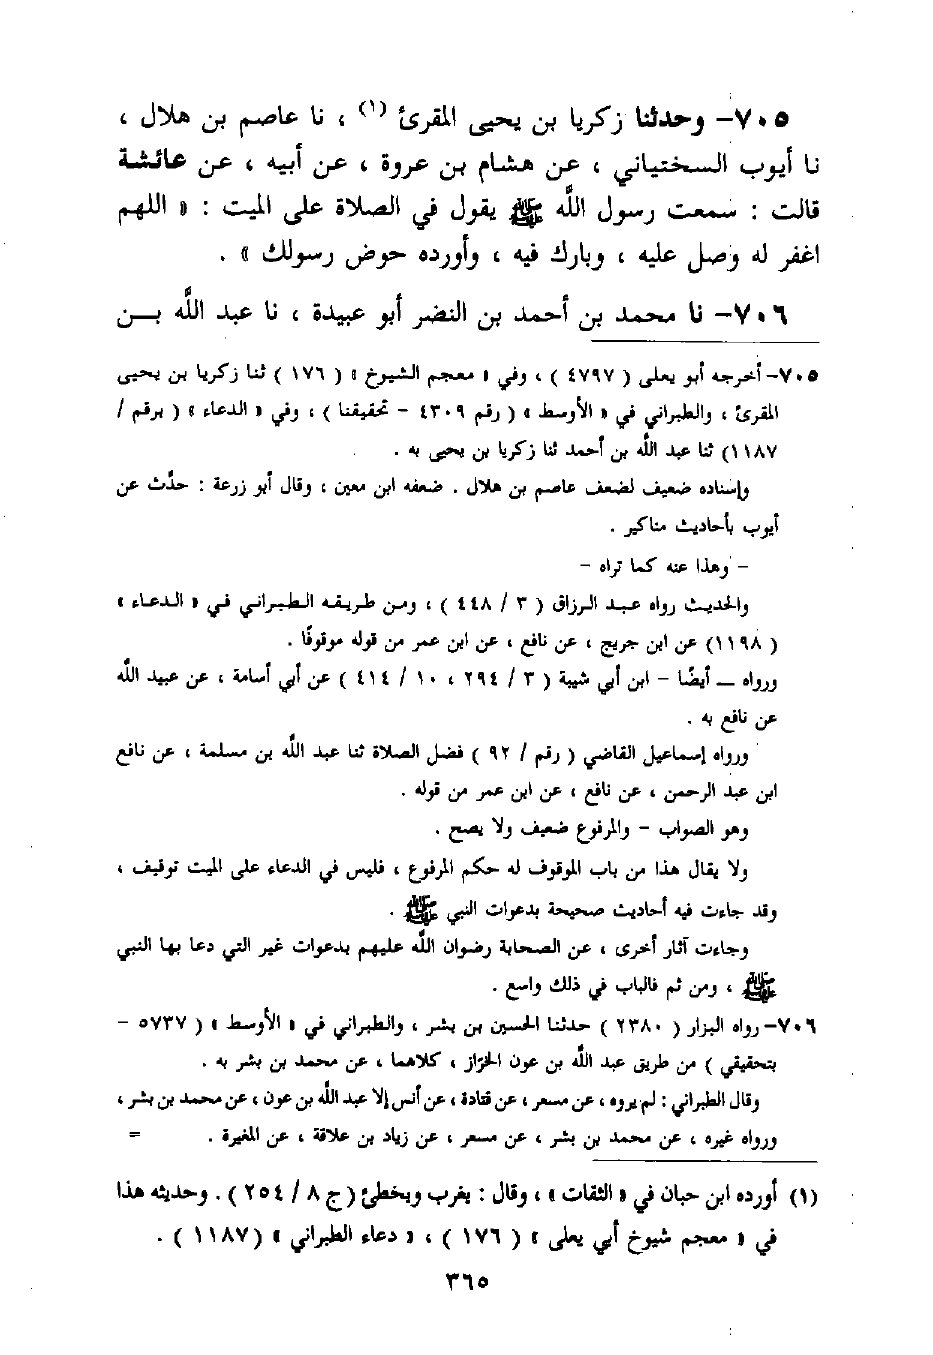 ٧٠٥- وحدثنا زكريا بن يحيى المقرئ (١) ، نا عاصم بن هلال ،
نا أيوب السختياني ، عن هشام بن عروة ، عن أبيه ، عن عائشة
قالت : سمعت رسول اللَّه ﷺ يقول في الصلاة على الميت : « اللهم
اغفر له وصل عليه ، وبارك فيه ، وأورده حوض رسولك » .
٧٠٦- نا محمد بن أحمد بن النضر أبو عبيدة ، نا عبد اللَّه بـــن
٧٠٥- أخرجه أبو يعلى ( ٤٧٩٧ ) ، وفي « معجم الشيوخ » ( ١٧٦ ) ثنا زكريا بن يحيى
المقرئ ، والطبراني في « الأوسط » ( رقم ٤٣٠٩ - تحقيقنا ) ، وفي « الدعاء » ( برقم /
١١٨٧) ثنا عبد اللَّه بن أحمد ثنا زكريا بن يحيى به .
وإسناده ضعيف لضعف عاصم بن هلال . ضعفه ابن معين ، وقال أبو زرعة : حدَّث عن
أيوب بأحاديث مناكير .
- وهذا عنه كما تراه -
والحديث رواه عبد الرزاق ( ٣ / ٤٤٨ ) ، ومن طريقه الطبراني في « الدعاء »
( ١١٩٨) عن ابن جريج ، عن نافع ، عن ابن عمر من قوله موقوفًا .
ورواه ــ أيضًا - ابن أبي شيبة ( ٣ / ٢٩٤ ، ١٠ / ٤١٤ ) عن أبي أسامة ، عن عبيد اللَّه
عن نافع به .
ورواه إسماعيل القاضي ( رقم / ٩٢ ) فضل الصلاة ثنا عبد اللَّه بن مسلمة ، عن نافع
ابن عبد الرحمن ، عن نافع ، عن ابن عمر من قوله .
وهو الصواب - والمرفوع ضعيف ولا يصح .
ولا يقال هذا من باب الموقوف له حكم المرفوع ، فليس في الدعاء على الميت توقيف ،
وقد جاءت فيه أحاديث صحيحة بدعوات النبي ﷺ .
وجاءت آثار أخرى ، عن الصحابة رضوان اللَّه عليهم بدعوات غير التي دعا بها النبي
ﷺ ، ومن ثم فالباب في ذلك واسع .
٧٠٦- رواه البزار ( ٢٣٨٠ ) حدثنا الحسين بن بشر ، والطبراني في « الأوسط » ( ٥٧٣٧ -
بتحقيقي ) من طريق عبد اللَّه بن عون الخرَّاز ، كلاهما ، عن محمد بن بشر به .
وقال الطبراني : لم يروه ، عن مسعر ، عن قتادة ، عن أنس إلا عبد اللَّه بن عون ، عن محمد بن بشر ،
ورواه غيره ، عن محمد بن بشر ، عن مسعر ، عن زياد بن علاقة ، عن المغيرة . =
(١) أورده ابن حبان في « الثقات » ، وقال : يغرب ويخطئ (ج ٨ / ٢٥٤ ) . وحديثه هذا
في « معجم شيوخ أبي يعلى » ( ١٧٦ ) ، « دعاء الطبراني » (١١٨٧ ) .
٣٦٥